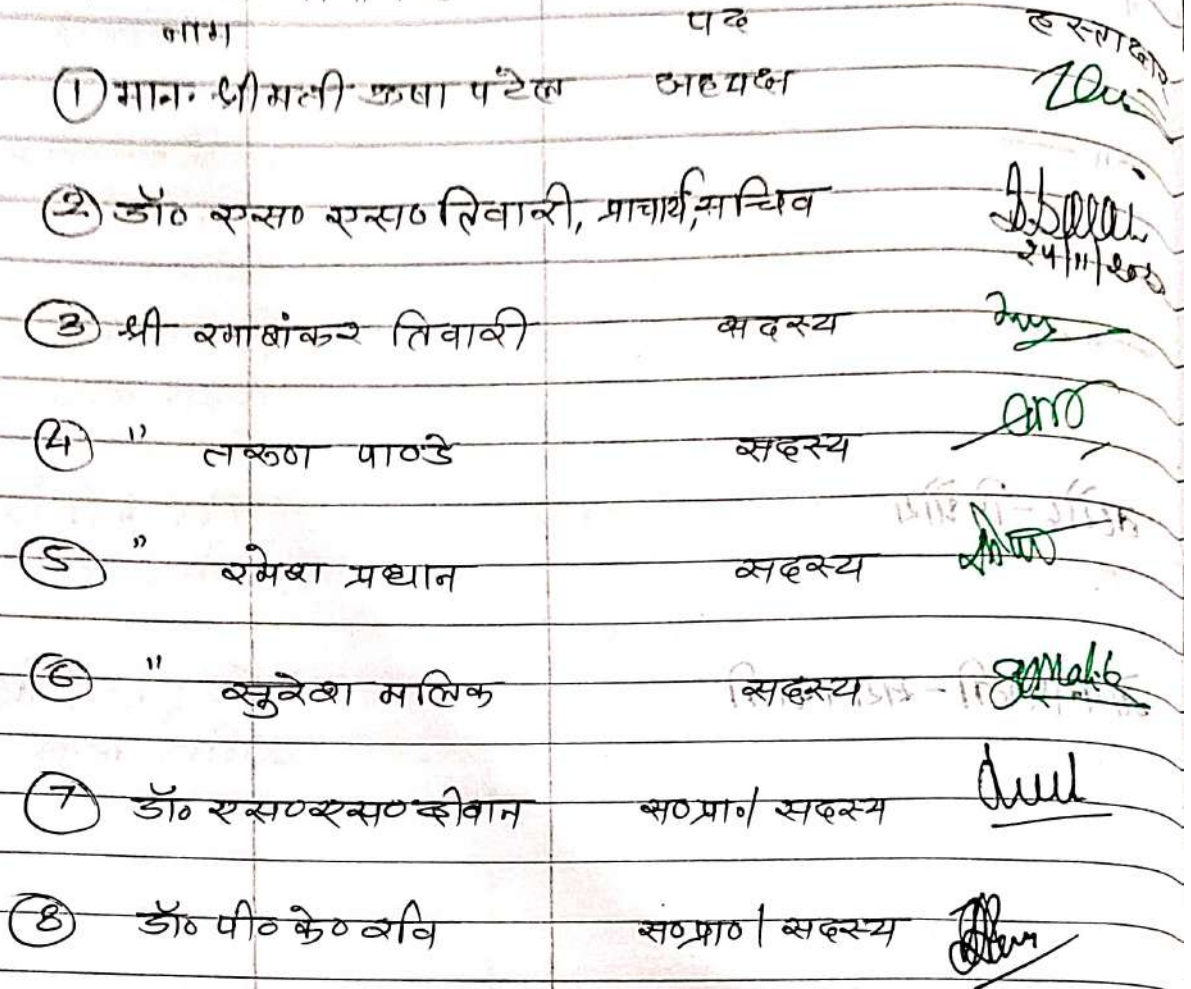 नाम पद हस्ताक्षर
① मान. श्रीमती ऊषा पटेल अध्यक्ष
② डॉ० एस० एस० तिवारी, प्राचार्य, सचिव
24/11/
③ श्री रमाशंकर तिवारी सदस्य
④ " तरूण पाण्डे सदस्य
⑤ " रमेश प्रधान सदस्य
⑥ " सुरेश मलिक सदस्य SMalik
⑦ डॉ० एस० एस० दीवान स०प्रा०/ सदस्य
⑧ डॉ० पी० के० रवि स०प्रा०/ सदस्य